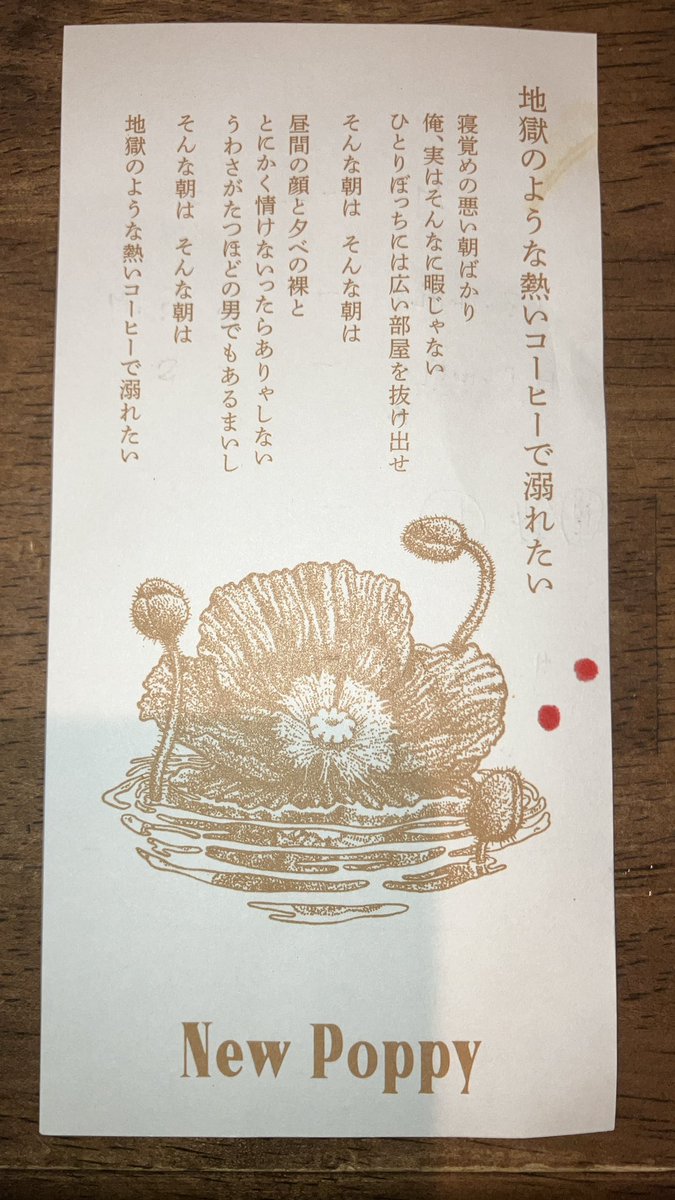 地獄のような熱いコーヒーで溺れたい
寝覚めの悪い朝ばかり
俺、実はそんなに暇じゃない
ひとりぼっちには広い部屋を抜け出せ
そんな朝は そんな朝は
昼間の顔と夕べの裸と
とにかく情けないったらありゃしない
うわさがたつほどの男でもあるまいし
そんな朝は そんな朝は
地獄のような熱いコーヒーで溺れたい
New Poppy